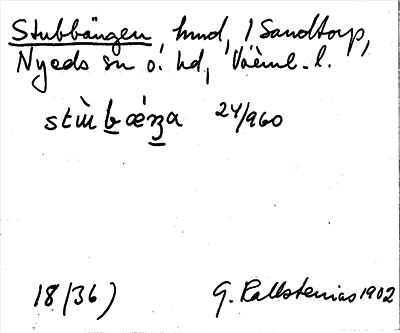 Stubbängen, hmd, 1 Sandtorp,
Nyeds sn o. hd, Värml. l.
stùbǽŋa 24/960
18/36) G. Kallstenius 1902